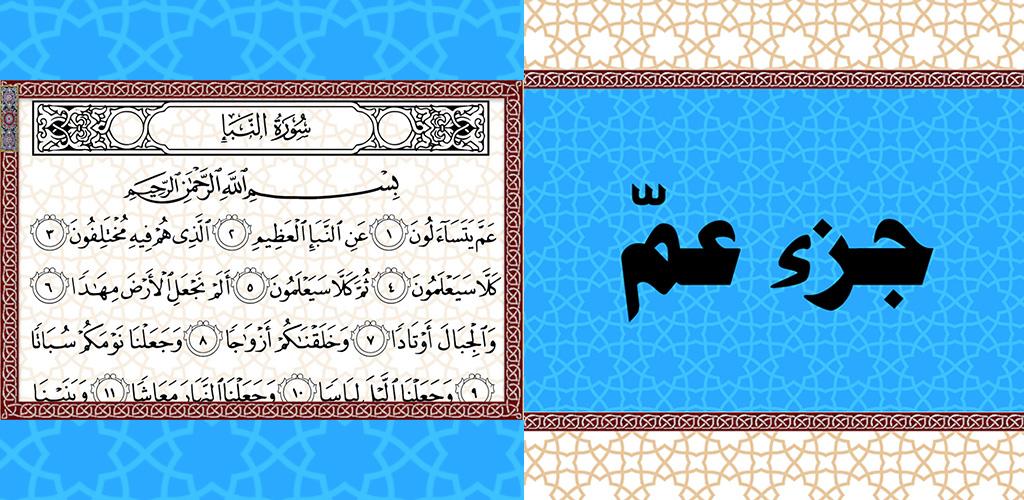 سُورَةُ النَّبَإِ
بِسْمِ ٱللَّهِ ٱلرَّحْمَٰنِ ٱلرَّحِيمِ
عَمَّ يَتَسَآءَلُونَ ١ عَنِ ٱلنَّبَإِ ٱلْعَظِيمِ ٢ ٱلَّذِى هُمْ فِيهِ مُخْتَلِفُونَ ٣
كَلَّا سَيَعْلَمُونَ ٤ ثُمَّ كَلَّا سَيَعْلَمُونَ ٥ أَلَمْ نَجْعَلِ ٱلْأَرْضَ مِهَٰدًا ٦
وَٱلْجِبَالَ أَوْتَادًا ٧ وَخَلَقْنَٰكُمْ أَزْوَٰجًا ٨ وَجَعَلْنَا نَوْمَكُمْ سُبَاتًا
٩ وَجَعَلْنَا ٱلَّيْلَ لِبَاسًا ١٠ وَجَعَلْنَا ٱلنَّهَارَ مَعَاشًا ١١ وَبَنَيْنَا
جزء عمّ